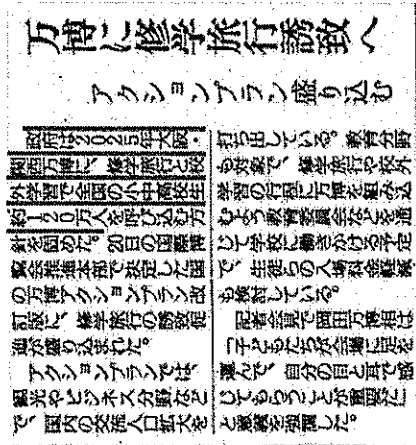 万博に修学旅行誘致へ
アクションプラン盛り込む
政府は2025年大阪・
関西万博に、修学旅行と校
外学習で全国の小中高校生
約120万人を呼び込む方
針を固めた。20日の国際博
覧会推進本部で決定した国
の万博アクションプラン改
訂版に、修学旅行の誘致促
進が盛り込まれた。
アクションプランでは、
観光やビジネス分野など
で、国内の交流人口拡大を
打ち出している。教育分野
も対象で、修学旅行や校外
学習の行程に万博を組み込
むよう教育委員会などを通
じて学校に働きかける予定
で、生徒らの入場料金軽減
も検討している。
記者会見で岡田万博相は
「子どもたちが会場に足を
運んで、自分の目と耳で感
じてもらうことが重要だ」
と意義を強調した。